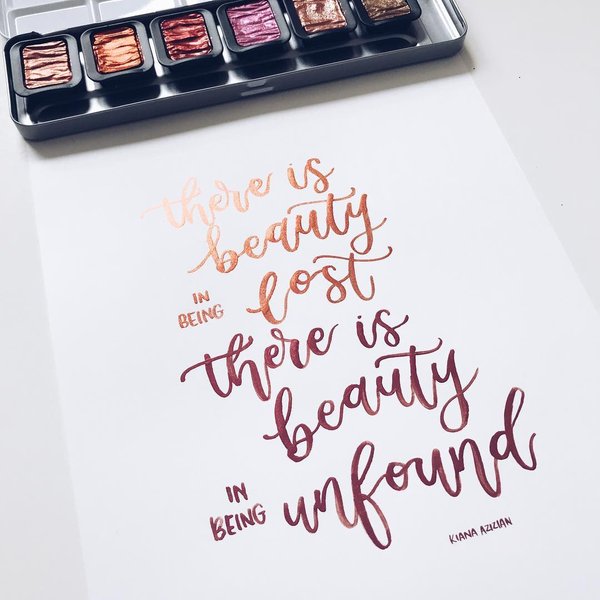 there is
beauty
IN
BEING
lost
there is
beauty
IN
BEING
unfound
KIANA AZIZIAN